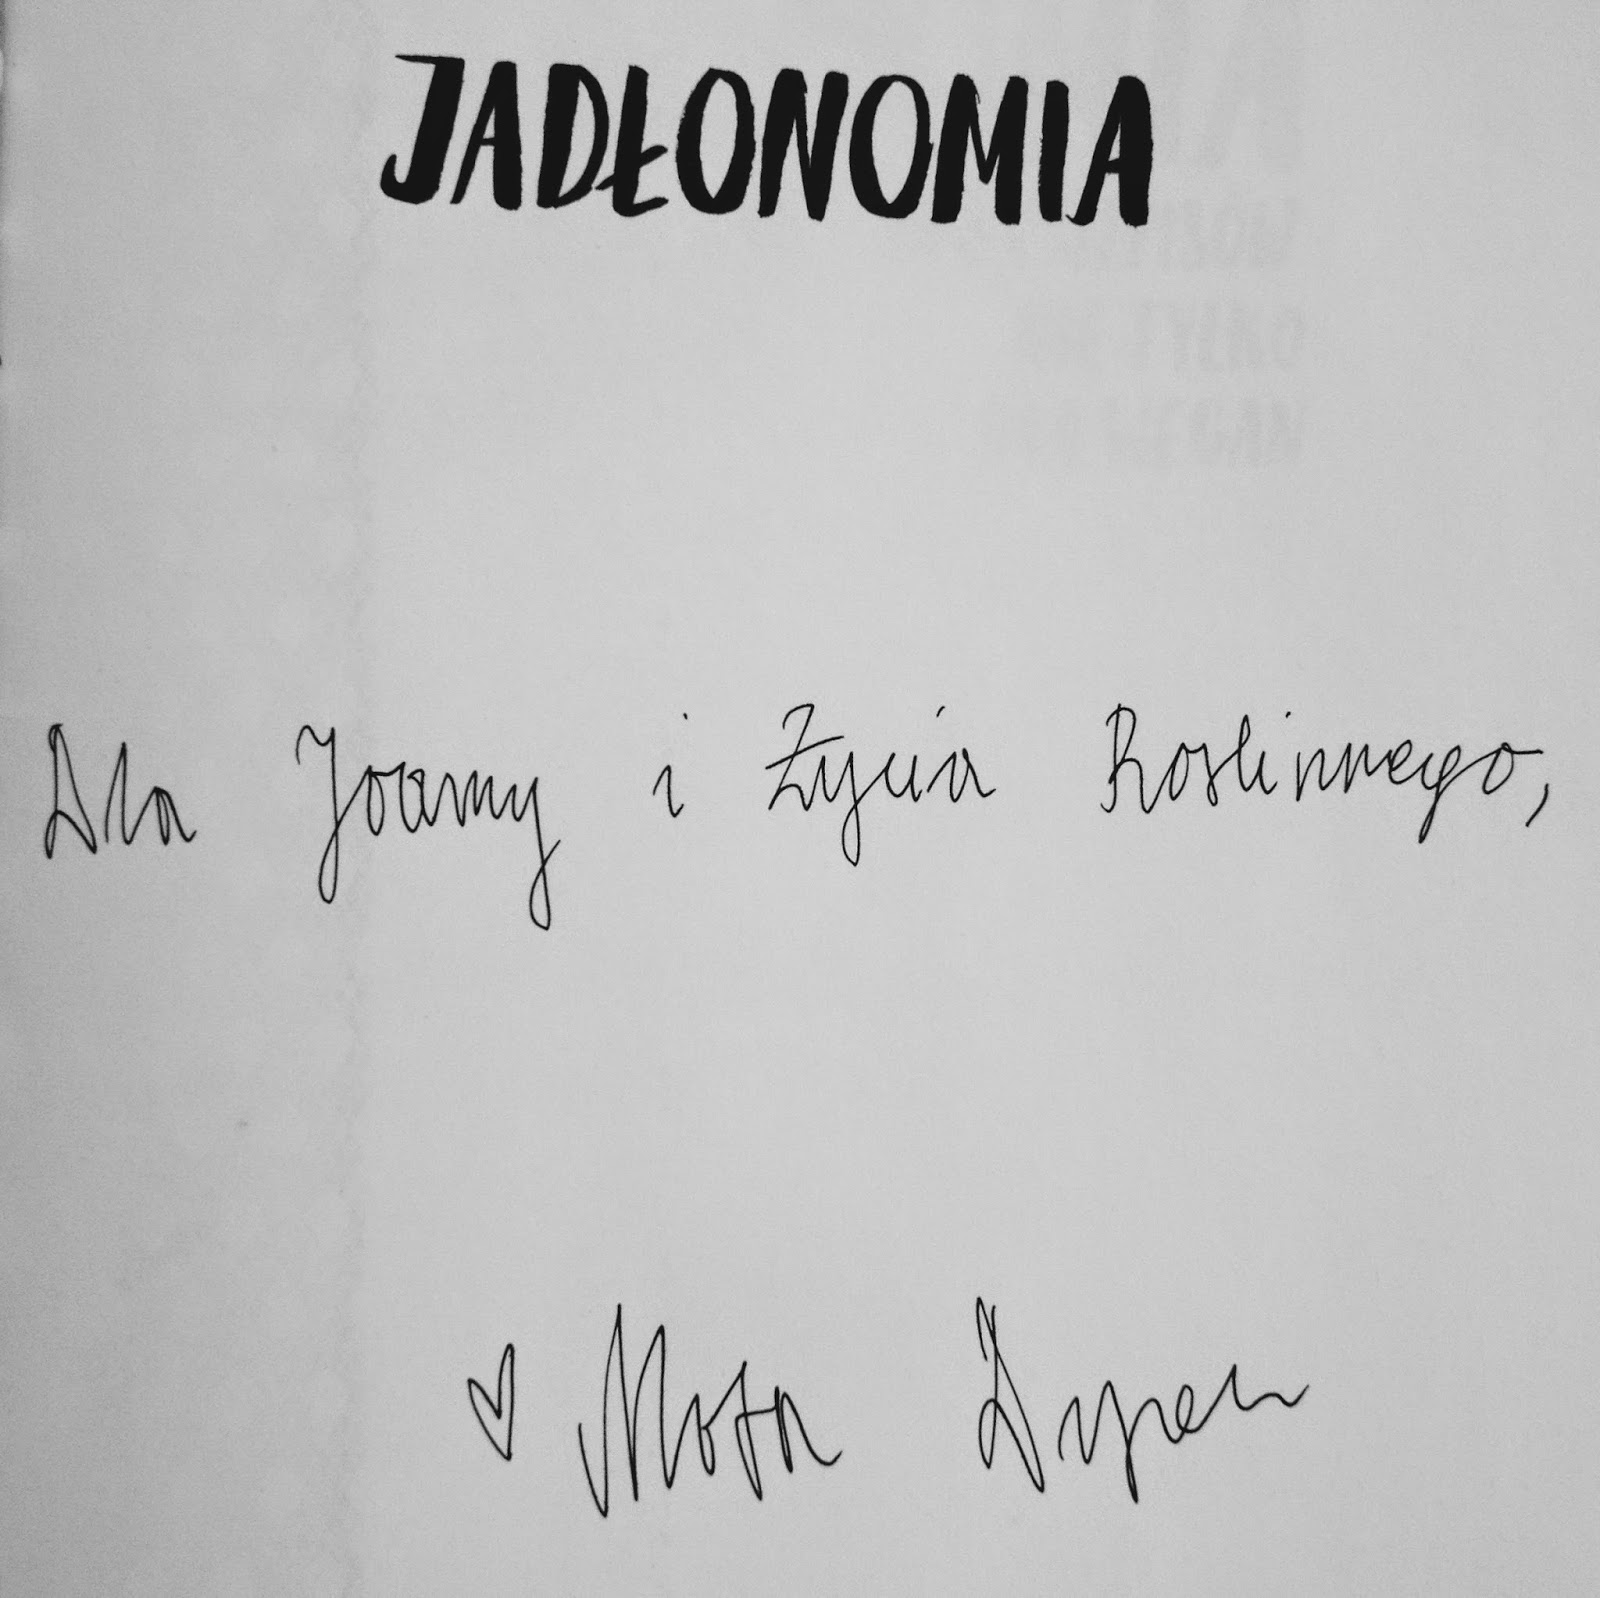 JADŁONOMIA
Dla Joanny i Życia Roślinnego,
♥ Marta Dymek